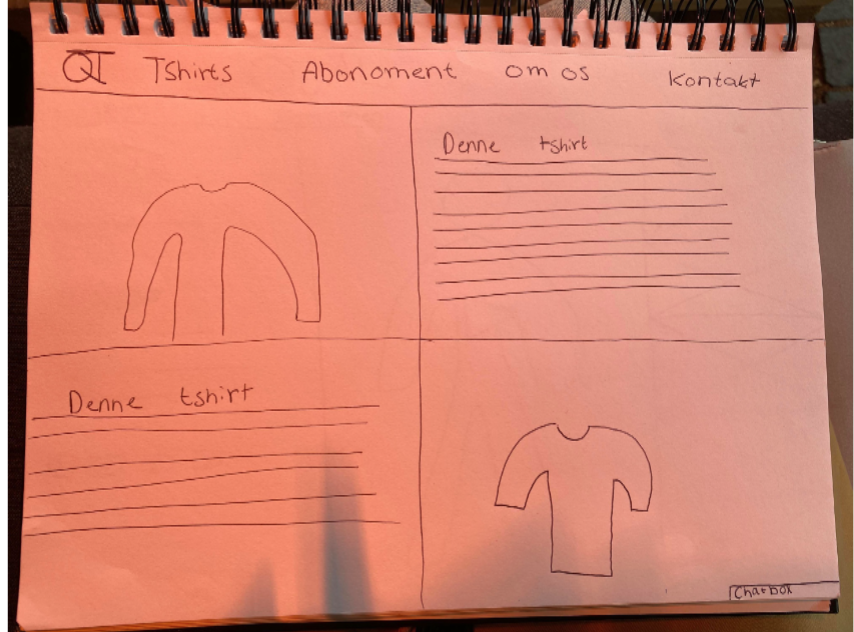 QT Tshirts Abonoment om os Kontakt
Denne tshirt
Denne tshirt
Chatbox